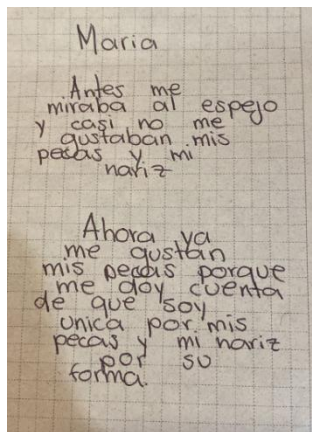 Maria
Antes me
miraba al espejo
y casi no me
gustaban mis
pecas y mi
nariz
Ahora ya
me gustan
mis pecas porque
me doy cuenta
de que soy
unica por mis
pecas y mi nariz
por su
forma.